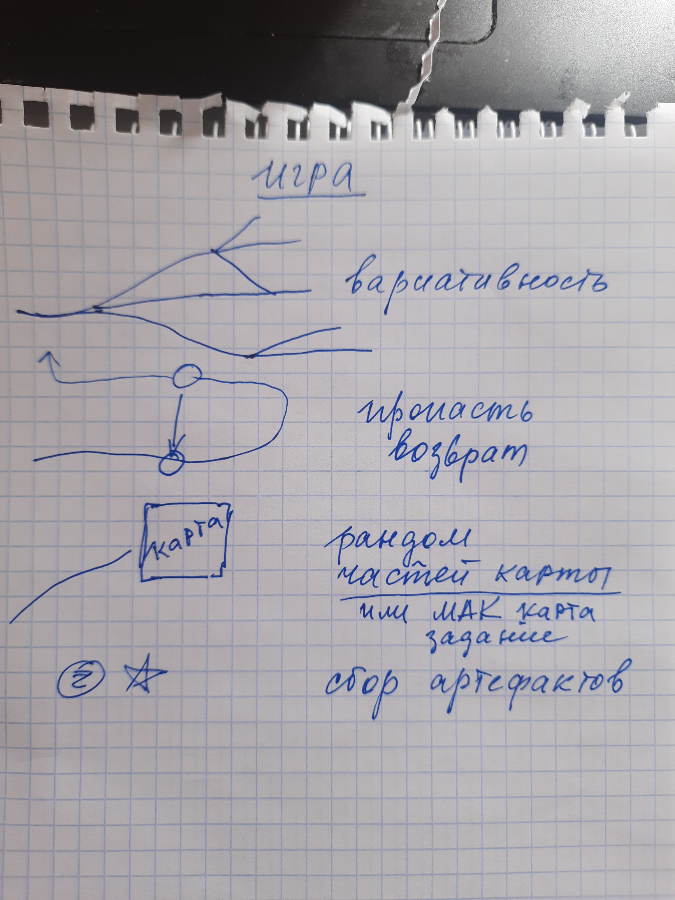 игра
вариативность
пропасть
возврат
карта
рандом
частей карты
или МАК карта
задание
сбор артефактов